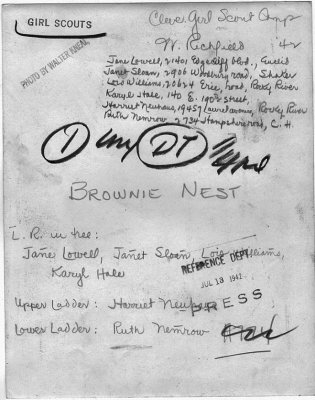 GIRL SCOUTS
Cleve. Girl Scout Camp
W. Richfield '42
PHOTO BY WALTER KNEAL
Jane Lowell, 21401 Edgecliff blvd., Euclid
Janet Sloan, 2906 Woodbury road, Shaker
Lois Williams, 20624 Erie, road, Rocky River
Karyl Hale, 140 E. 190th street,
Harriet Neuhaus, 19457 Laurel avenue, Rocky River
Ruth Nemrow 2734 Hampshire road, C. H.
1 DT
BROWNIE NEST
L. R. in tree:
Jane Lowell, Janet Sloan, Lois Williams,
Karyl Hale
REFERENCE DEPT.
JUL 13 1942
PRESS
Upper Ladder: Harriet Neuhaus
Lower Ladder: Ruth Nemrow